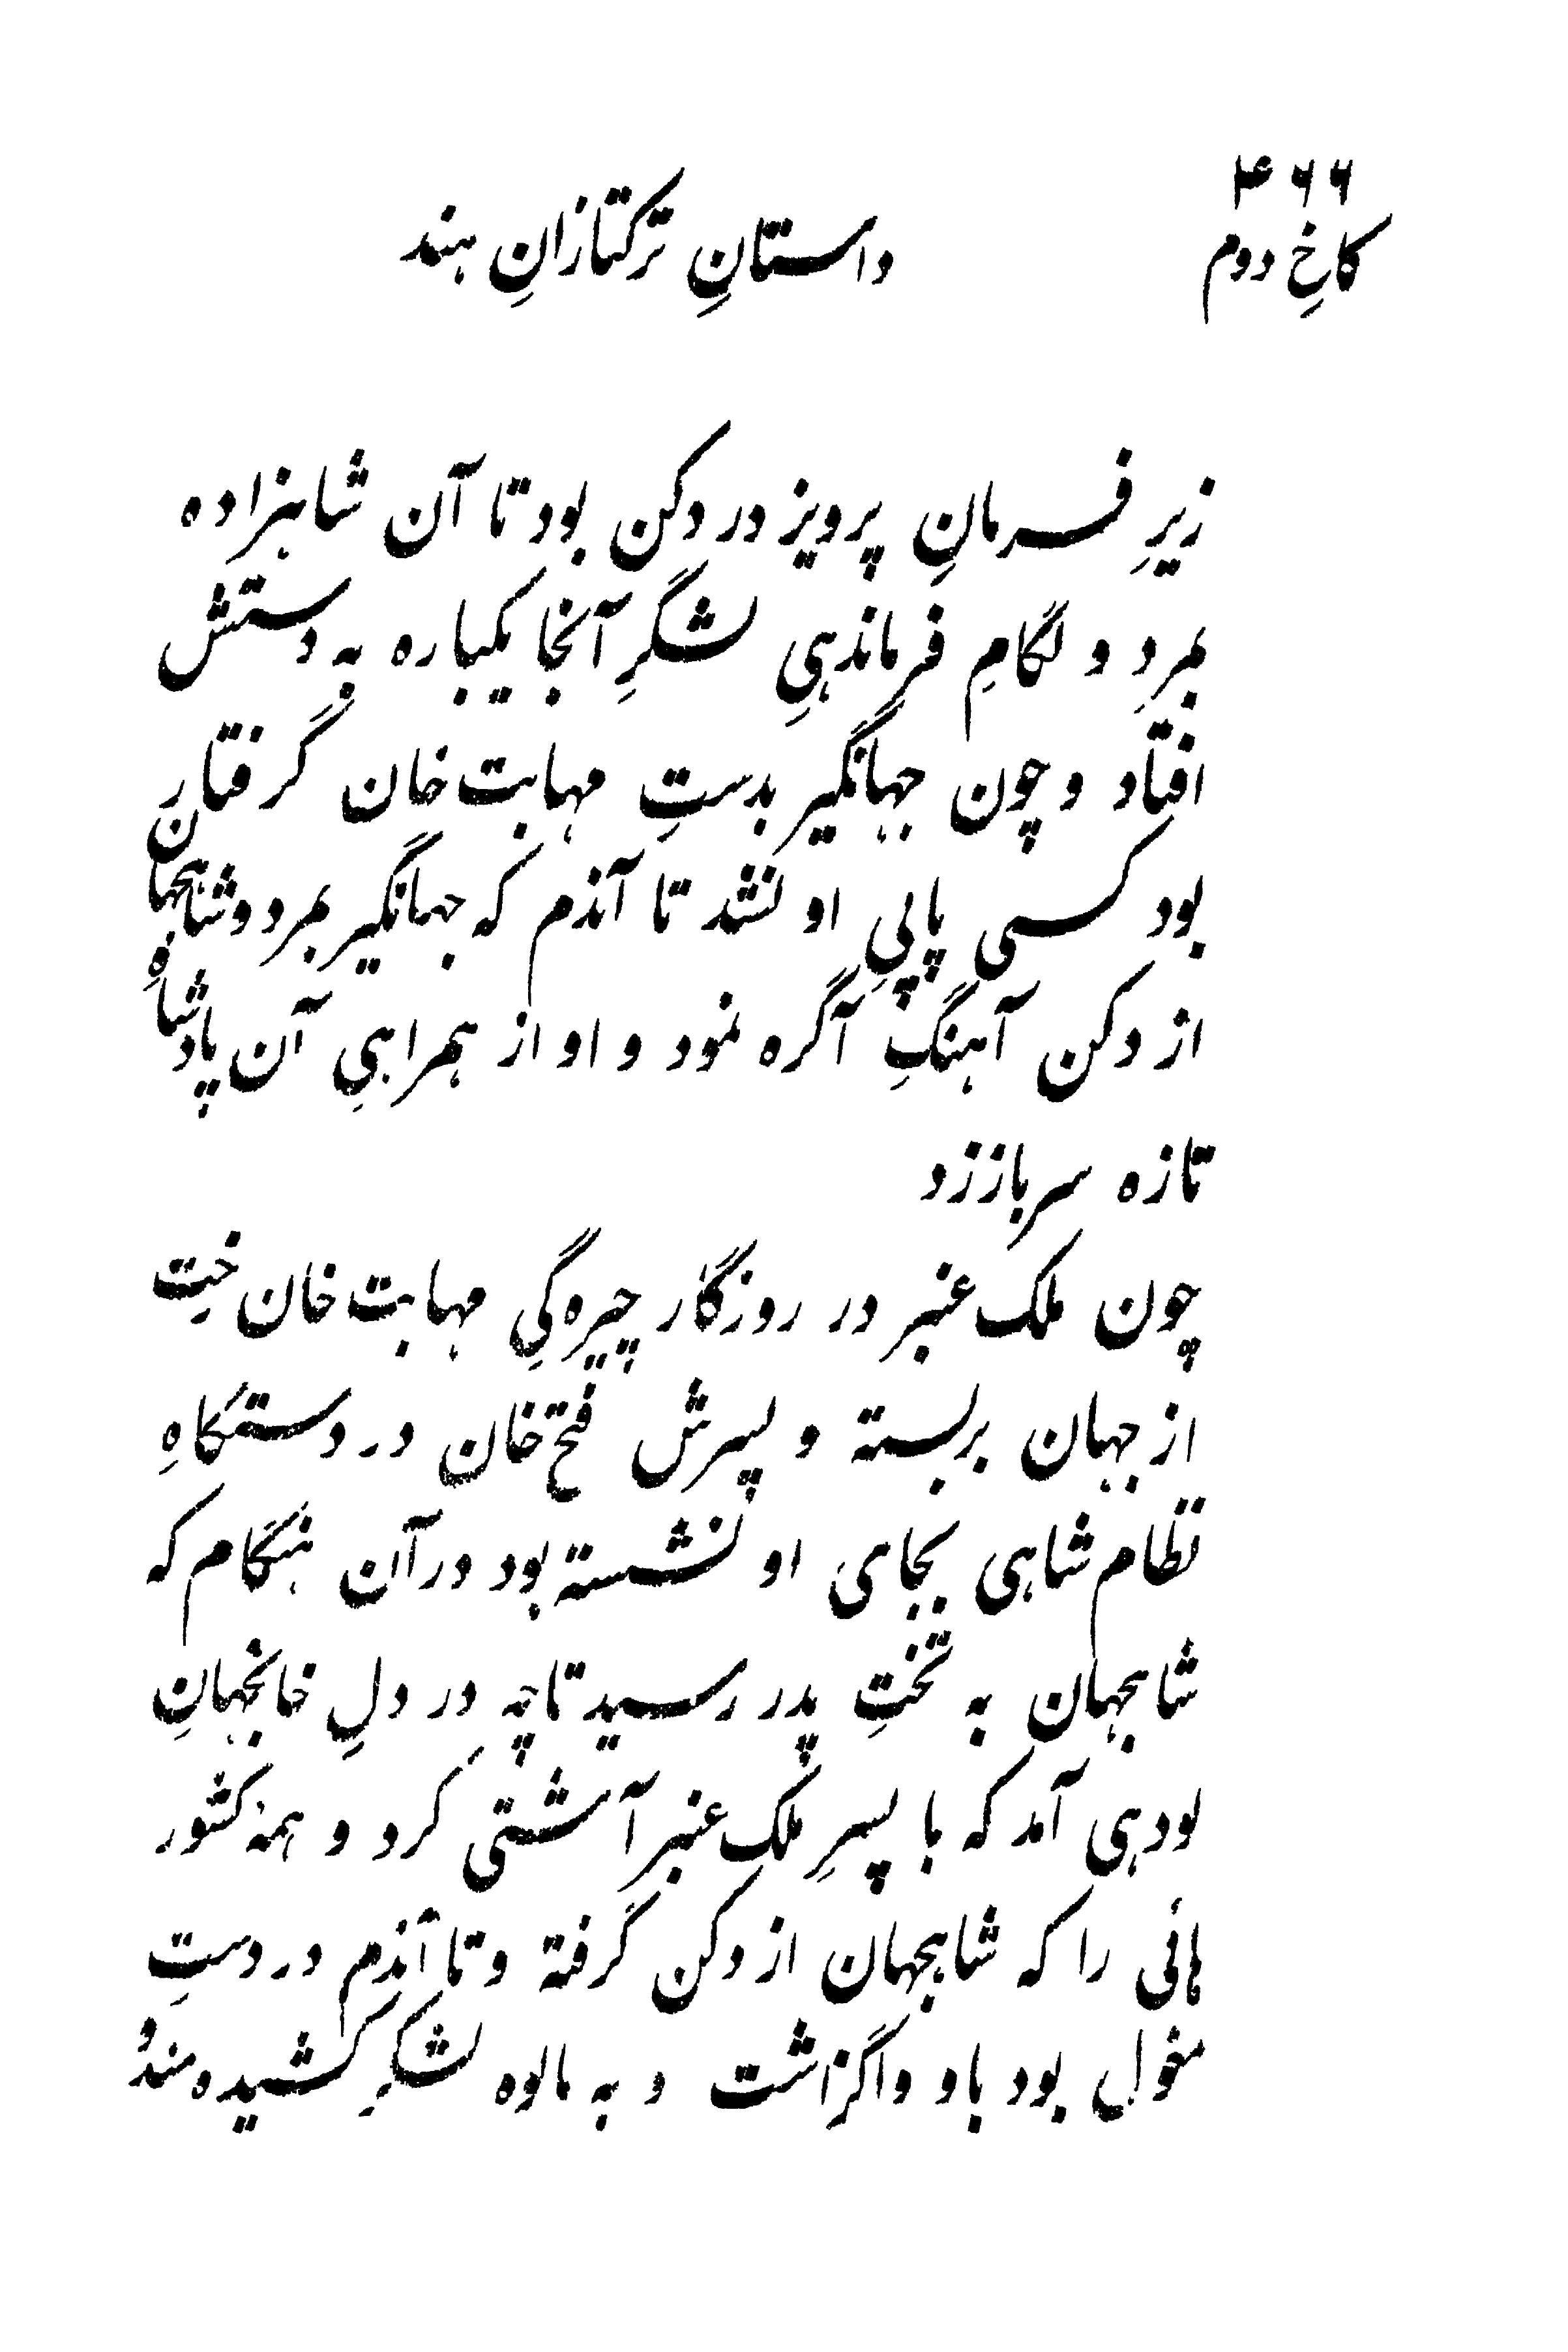 ۴۶۶
کاخِ دوم
داستانِ ترکتازانِ هند
زیرِ فرمانِ پرویز در دکن بود تا آن شاہزاده
بمرد و لگامِ فرماندہیِ لشگرِ آنجا یکباره به دستش
افتاد و چون جہانگیر بدستِ مہابت خان گرفتار
بود کسی پاپیِ او نشد تا آندم که جہانگیر بمرد و شاہجہان
از دکن آہنگِ آگره نمود و او از ہمراہیِ آن پادشاهِ
تازه سر باز زد
چون ملک عنبر در روزگار چیره‌گیِ مہابت خان رخت
از جہان بربسته و پسرش فتح خان در دستگاهِ
نظام شاہی بجای او نشسته بود در آن ہنگام که
شاہجہان به تختِ پدر رسید تا چه در دلِ خانجہانِ
لودہی آمد که با پسرِ ملک عنبر آشتی کرد و ہمۂ کشور
ہائی را که شاہجہان از دکن گرفته و تا آندم در دستِ
مغول بود باو واگزاشت و به مالوه لشکر کشیده مندُو